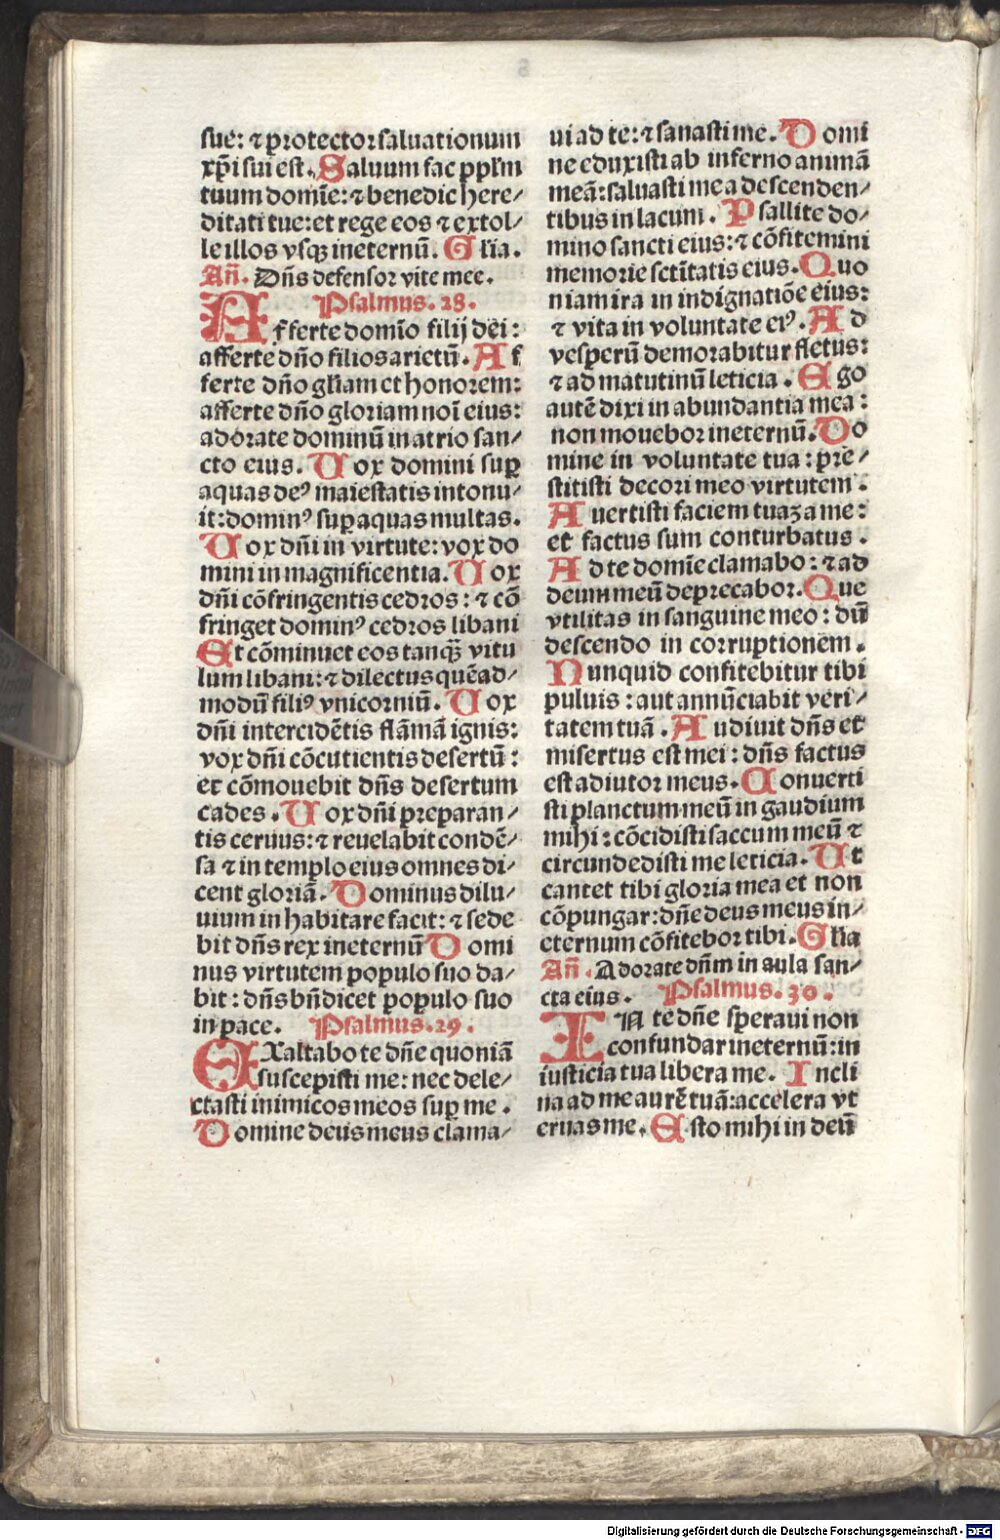 sue: ⁊ protector saluationum
xp̄i sui est. Saluum fac pplm̄
tuum domīe: ⁊ benedic here/
ditati tue: et rege eos ⁊ extol/
le illos vsqꝫ in eternū. Glīa.
Añ. Dn̄s defensor vite mee.
Psalmus. 28.
Afferte domīo filij dei:
afferte dn̄o filios arietū. Af
ferte dn̄o gl̄iam et honorem:
afferte dn̄o gloriam noī eius:
adorate dominū in atrio san/
cto eius. Uox domini suꝑ
aquas deꝰ maiestatis intonu/
it: dominꝰ suꝑ aquas multas.
Uox dn̄i in virtute: vox do
mini in magnificentia. Uox
dn̄i cōfringentis cedros: ⁊ cō
fringet dominꝰ cedros libani
Et cōminuet eos tanqꝫ̄ vitu
lum libani: ⁊ dilectus quēad/
modū filiꝰ vnicorniū. Uox
dn̄i intercidētis flāmā ignis:
vox dn̄i cōcutientis desertū:
et cōmouebit dn̄s desertum
cades. Uox dn̄i preparan/
tis ceruus: ⁊ reuelabit condē/
sa ⁊ in templo eius omnes di/
cent gloriā. Dominus dilu/
uium inhabitare facit: ⁊ sede
bit dn̄s rex in eternū Domi
nus virtutem populo suo da/
bit: dn̄s bn̄dicet populo suo
in pace. Psalmus. 29.
Exaltabo te dn̄e quoniā
suscepisti me: nec dele/
ctasti inimicos meos suꝑ me.
Domine deus meus clama/
ui ad te: ⁊ sanasti me. Domi
ne eduxisti ab inferno animā
meā: saluasti me a descenden/
tibus in lacum. Psallite do/
mino sancti eius: ⁊ cōfitemini
memorie sctītatis eius. Quo
niam ira in indignatiōe eius:
⁊ vita in voluntate eiꝰ. Ad
vesperū demorabitur fletus:
⁊ ad matutinū leticia. Ego
autē dixi in abundantia mea:
non mouebor in eternū. Do
mine in voluntate tua: pre/
stitisti decori meo virtutem.
Auertisti faciem tuaꝫ a me:
et factus sum conturbatus.
Ad te domīe clamabo: ⁊ ad
deum meū deprecabor. Que
vtilitas in sanguine meo: dū
descendo in corruptionem.
Nunquid confitebitur tibi
puluis: aut annūciabit veri/
tatem tuā. Audiuit dn̄s et
misertus est mei: dn̄s factus
est adiutor meus. Conuerti
sti planctum meū in gaudium
mihi: cōcidisti saccum meū ⁊
circundedisti me leticia. Ut
cantet tibi gloria mea et non
cōpungar: dn̄e deus meus in/
eternum cōfitebor tibi. Gl̄ia
Añ. Adorate dn̄m in aula san/
cta eius. Psalmus. 30.
IN te dn̄e speraui non
confundar in eternū: in
iusticia tua libera me. Incli
na ad me aurē tuā: accelera vt
eruas me. Esto mihi in deū
Digitalisierung gefördert durch die Deutsche Forschungsgemeinschaft - DFG